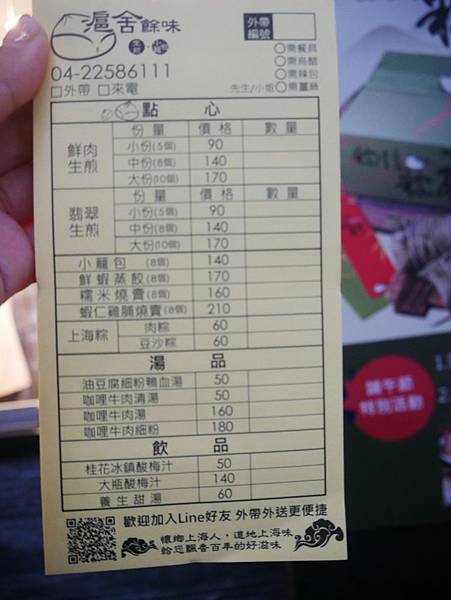 滬舍餘味
外帶編號
○需餐具
○需烏醋
○需辣包
○需薑絲
04-22586111
□外帶 □來電
先生/小姐
點 心
鮮肉生煎
份量 價格 數量
小份(5個) 90
中份(8個) 140
大份(10個) 170
翡翠生煎
份量 價格 數量
小份(5個) 90
中份(8個) 140
大份(10個) 170
小籠包 (8個) 140
鮮蝦蒸餃(8個) 170
糯米燒賣(8個) 160
蝦仁雞脯燒賣(8個) 210
上海粽
肉粽 60
豆沙粽 60
湯 品
油豆腐細粉鴨血湯 50
咖哩牛肉清湯 50
咖哩牛肉湯 160
咖哩牛肉細粉 180
飲 品
桂花冰鎮酸梅汁 50
大瓶酸梅汁 140
養生甜湯 60
歡迎加入Line好友 外帶外送更便捷
懷鄉上海人，道地上海味
給您飄香百年的好滋味
端午節
特別活動
1.
2.